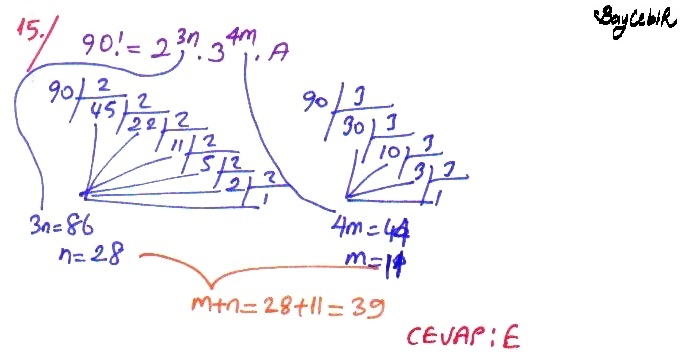 BayCebiR
15./
90! = 2^3n . 3^4m . A
90 2
45 2
22 2
11 2
5 2
2 2
1
90 3
30 3
10 3
3 3
1
3n=86
n=28
4m=44
m=11
m+n=28+11=39
CEVAP: E